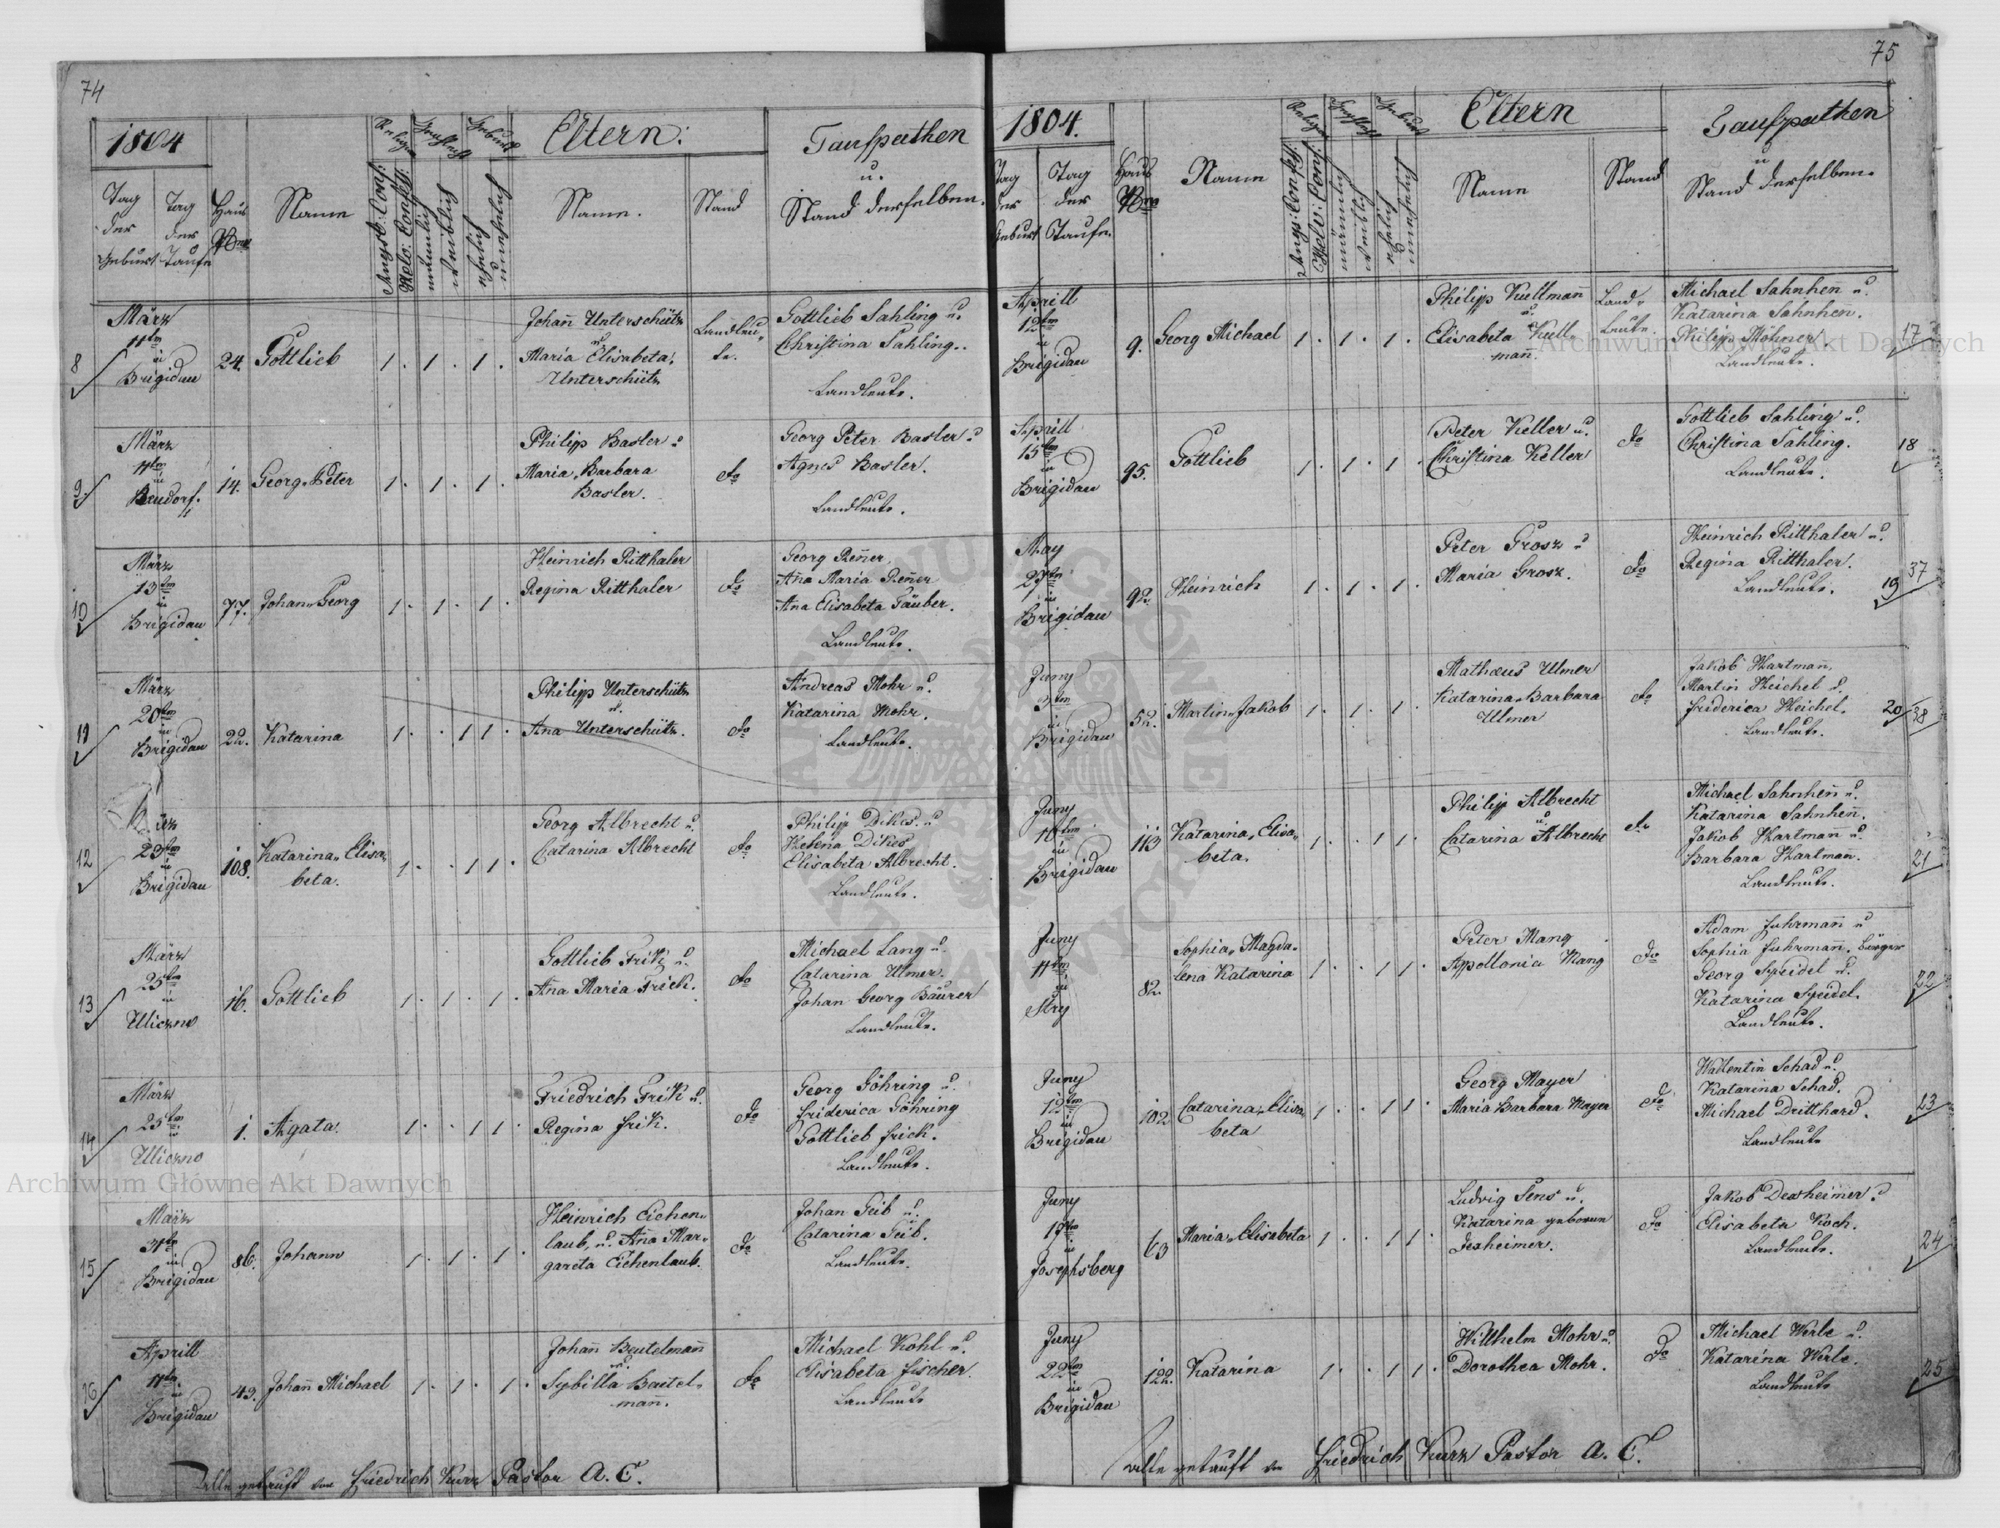 74
1804
Eltern:
Taufpathen
u.
Stand derselben.
Tag der Geburt
Tag der Taufe
Haus Nro
Name
Religion
Geschlecht
Geburt
Augsb: Conf:
Helv: Conf:
männlich
weiblich
ehelich
unehelich
Name.
Stand
8
März
11tn
in
Brigidau
24.
Gottlieb
1 . 1 . 1 .
Johañ Unterschütz
u.
Maria Elisabeta
Unterschütz
Landleu„
te.
Gottlieb Sahling u.
Christina Sahling.
Landleute.
9
März
11tn
in
14.
Georg„Peter
1 . 1 . 1 .
Philipp Basler u
Maria„Barbara
Basler.
do
Georg Peter Basler u
Agnes Basler.
Landleute.
10
März
13tn
in
Brigidau
77.
Johan„Georg
1 . 1 . 1 .
Heinrich Ritthaler
Regina Ritthaler
do
Georg Reñer
Aña Maria Reñer
Ana Elisabeta Täuber.
Landleute.
11
März
20tn
in
Brigidau
22.
Katarina
1 . . 1 1 .
Philipp Unterschütz
u.
Ana Unterschütz.
do
Andreas Mohr u.
Katarina Mohr.
Landleute.
12
März
23tn
in
Brigidau
108.
Katarina„Elisa„
beta.
1 . . 1 1 .
Georg Albrecht u.
Catarina Albrecht
do
Philip Dikes u
Helena Dikes
Elisabeta Albrecht.
Landleute.
13
März
25tn
in
Uliczno
16.
Gottlieb
1 . 1 . 1 .
Gottlieb Frik u.
Aña Maria Frick.
do
Michael Lang u.
Catarina Ulmer.
Johan Georg Baurer
Landleute.
14
März
25tn
in
Uliczno
1.
Agata.
1 . . 1 1 .
Friedrich Frik u.
Regina Frik.
do
Georg Göhring u.
Friderica Göhring
Gottlieb Frick.
Landleute.
15
März
31tn
in
Brigidau
86.
Johann
1 . 1 . 1 .
Heinrich Eichen„
laub, u. Aña Mar„
gareta Eichenlaub.
do
Johan Geib u.
Catarina Geib.
Landleute.
16
Aprill
11tn
in
Brigidau
43.
Johañ Michael
1 . 1 . 1 .
Johañ Beutelmañ
u.
Sybilla Baitel„
man.
do
Michael Kohl u.
Elisabeta Fischer.
Landleute
Alle getauft von Friedrich Kurz Pastor A. C.
75
1804.
Eltern
Taufpathen
u
Stand derselben.
Tag der Geburt
Tag der Taufe.
Haus Nro
Name
Religion
Geschlecht
Geburt
Augs: Conf:
Helv: Conf.
männlich
weiblich
ehelich
unehelich
Name
Stand
Aprill
12tn
in
Brigidau
9.
Georg Michael
1 . 1 . 1 .
Philipp Kullmañ
u.
Elisabeta Kull„
mañ.
Land„
leute.
Michael Sahnheñ u.
Katarina Sahnheñ.
Philipp Mohner
Landleute.
17
Aprill
15tn
in
Brigidau
95.
Gottlieb
1 . 1 . 1 .
Peter Keller u.
Christina Keller
do
Gottlieb Sahling u.
Christina Sahling.
Landleute.
18
May
27tn
in
Brigidau
92
Heinrich
1 . 1 . 1 .
Peter Grosz u
Maria Grosz.
do
Heinrich Ritthaler u.
Regina Ritthaler.
Landleute.
19
37
Juny
in
Brigidau
52.
Martin„Jakob
1 . 1 . 1 .
Mathæus Ulmer
Katarina„Barbara
Ulmer
do
Jakob Hartman,
Martin Heichel u.
Friderica Heichel.
Landleute.
20
38
Juny
10tn
in
Brigidau
113
Katarina„Elisa„
beta.
1 . . 1 1 .
Philip Albrecht
u.
Catarina Albrecht
do
Michael Sahnheñ u.
Katarina Sahnheñ.
Jakob Hartmañ u.
Barbara Hartmañ.
Landleute.
21
Juny
11tn
in
Stry
82.
Sophia„Magda„
lena Katarina
1 . . 1 1 .
Peter Mang
Apollonia Mang
do
Adam Fuhrmañ u
Sophia Fuhrmañ, bürger
Georg Speidel u.
Katarina Speidel.
Landleute.
22
Juny
12tn
in
Brigidau
102
Catarina„Elisa
beta
1 . . 1 1 .
Georg Mayer
Maria Barbara Mayer
do
Wallentin Schad u.
Katarina Schad.
Michael Dritthard.
Landleute
23
Juny
17tn
in
Josephsberg
63
Maria„Elisabeta
1 . . 1 1 .
Ludvig Sens u.
Katarina geborene
Dexheimer.
do
Jakob Dexheimer u
Elisabeta Koch.
Landleute.
24
Juny
22tn
in
Brigidau
122.
Katarina
1 . . 1 1 .
Willhelm Mohr u.
Dorothea Mohr.
do
Michael Werle u.
Katarina Werle.
Landleute
25
Alle getauft von Friedrich Kurz Pastor A. C.
Archiwum Główne Akt Dawnych
Archiwum Główne Akt Dawnych
ARCHIWUM GŁÓWNE AKT DAWNYCH